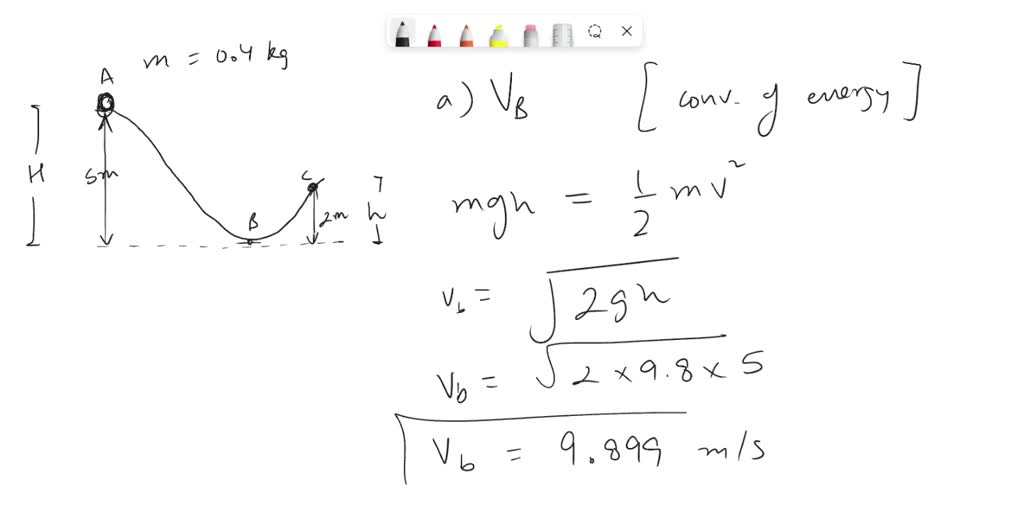 m = 0.4 kg
A
H
5m
B
C
2m
h
a) VB [conv. of energy]
mgh = 1/2 mv²
vb = √2gh
Vb = √2 × 9.8 × 5
Vb = 9.899 m/s